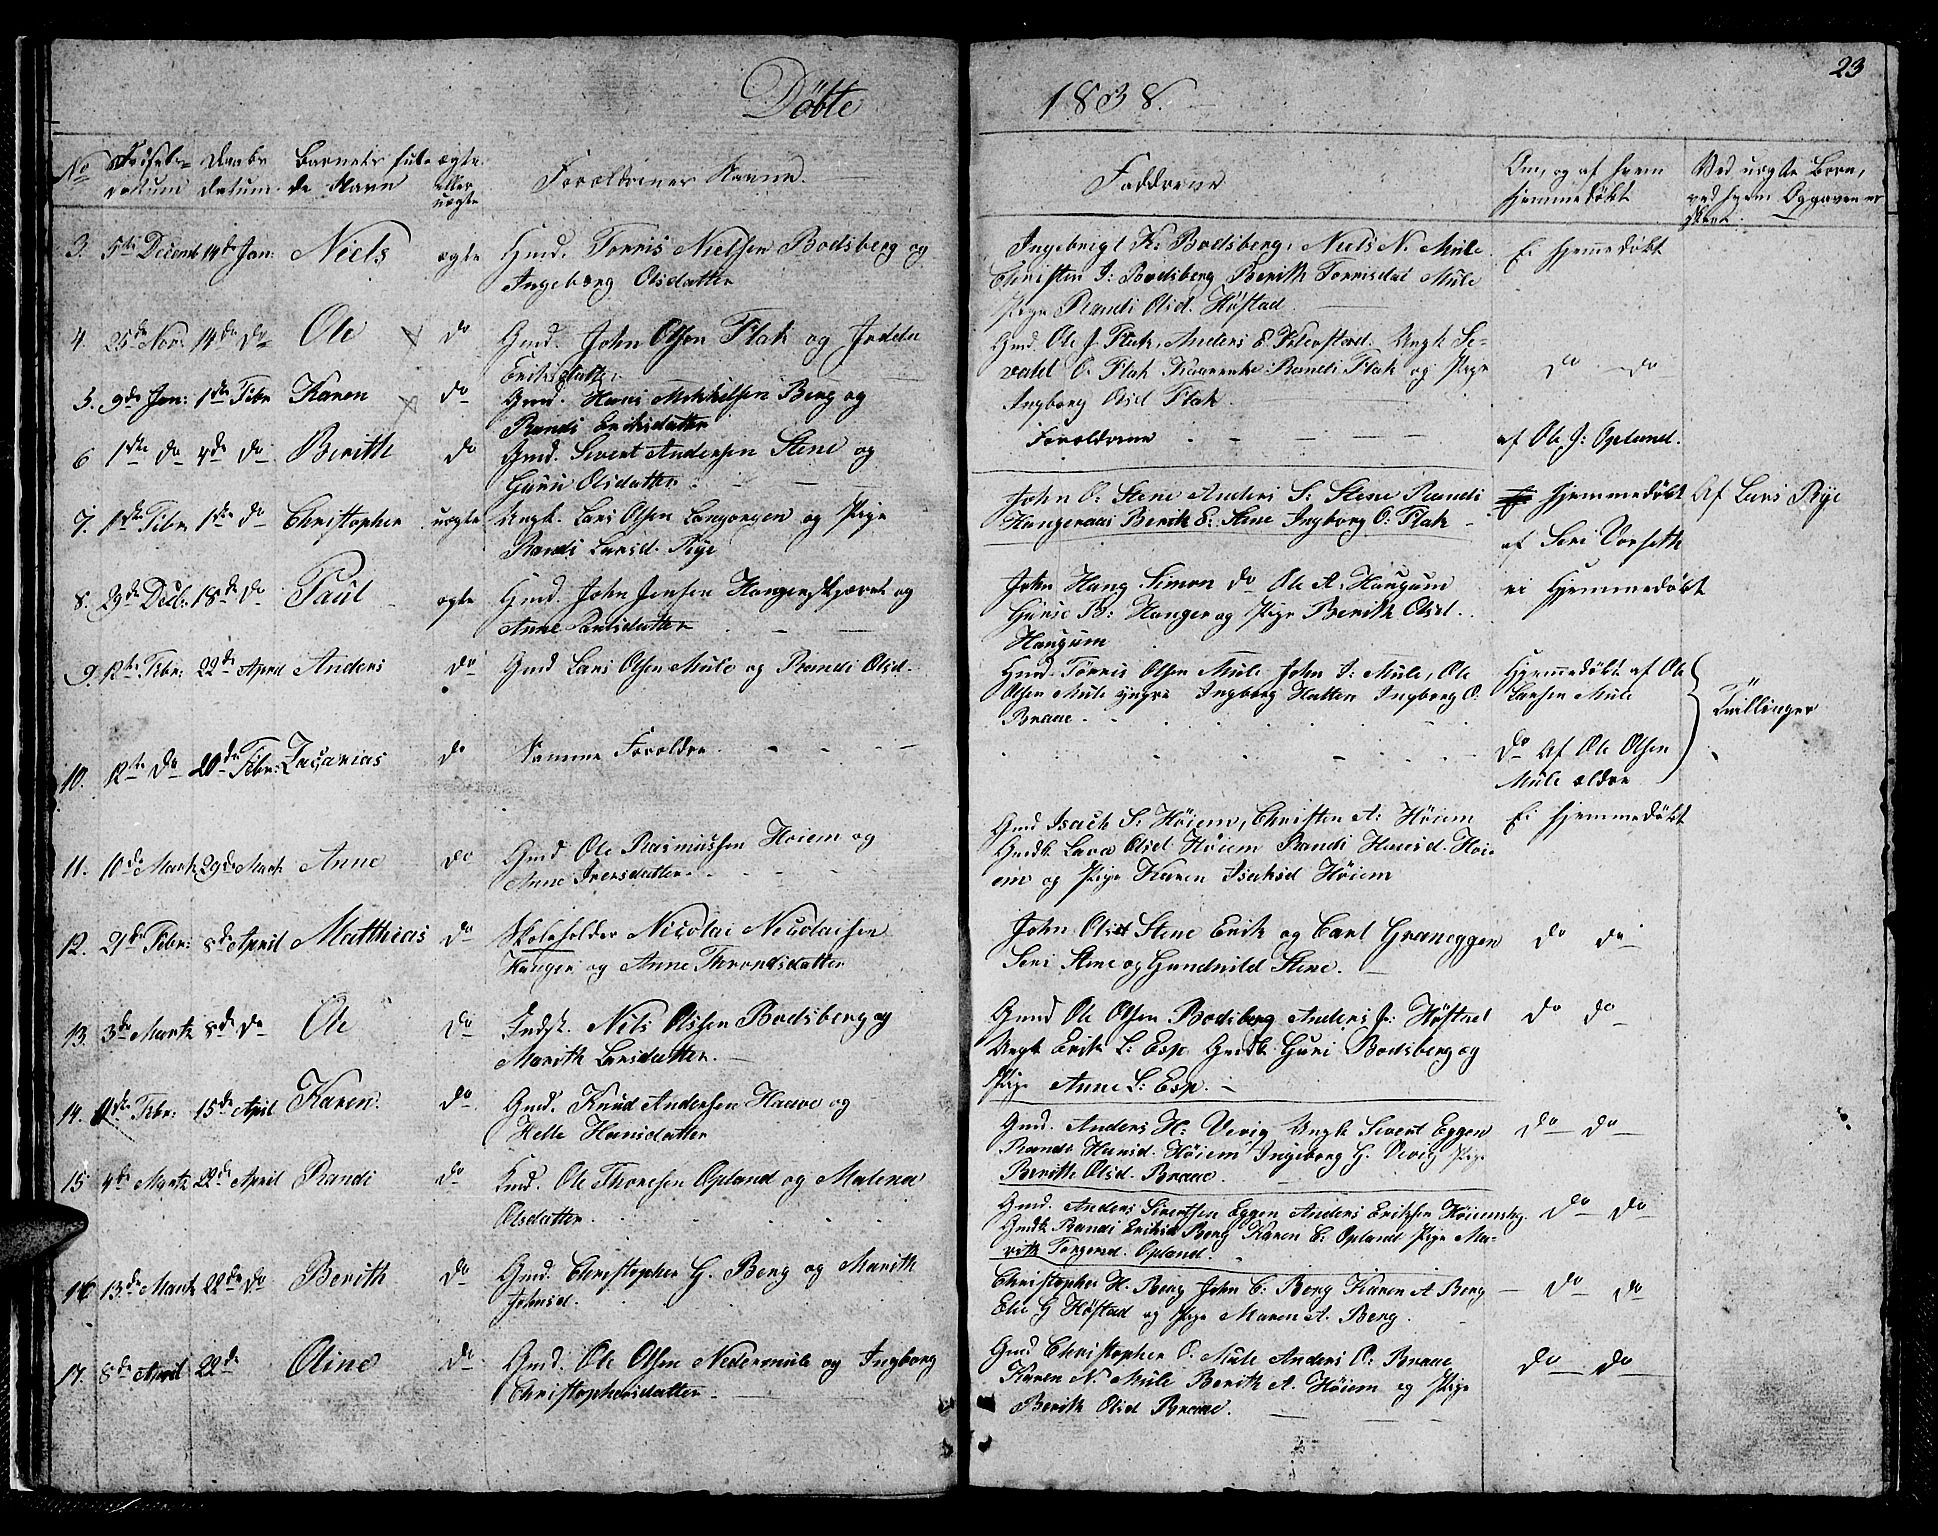 Döbte 1838.
23
No Fødsels datum Daabs datum. Barnets fulde Navn ægte eller uægte Forældrenes Navne. Faddrene Om, og af hvem hjemmedøbt Ved uægte Børn, ved hvem Opgaven er skeet.
3. 5te Decemb 14de Jan: Niels ægte Gmd. Torris Nielsen Bodsberg og
Ingeborg Olsdatter
Ingebrigt K: Bodsberg, Niels N. Mule
Christen J: Bodsberg Berith Torrisdat Mule
Pige Randi Olsd. Høstad
Ei hjemmedøbt
4. 25de Nov: 14de do Ole do Gmd. John Olsen Flak og
Eriksdatt.
Gmd. Ole J. Flak, Anders E. Ungk Si-
vald O. Flak Randi Flak og Pige
Ingborg Olsd Flak
do do
5. 9de Jan: 1ste Febr Karen do Gmd. Hans Mikkelsen Berg og
Randi Eriksdatter
Forældrene
af Ole J: Opland.
6 1ste do 4de do Berith do Gmd. Sivert Andersen Stene og
Guri Olsdatter
John O: Stene Anders S: Stene Randi
Berith E: Stene Ingborg O: Flak
7. 1ste Febr 1ste do Christopher uægte Ungk. Lars Olsen Langørgen og Pige
Randi Larsd. Rye
hjemmedøbt
af Siri Vorseth
Af Lars Rye
8. 29de Decb. 18de do Paul ægte Gmd. John Jensen og
Anne
John Haug Simon do Ole A. Haugum
Gurie B: Hanger og Pige Berith Olsd.
Haugum
ei Hjemmedøbt
9. 12te Febr: 22de April Anders do Gmd Lars Olsen Mule og Randi Olsd.
Gmd. Törris Olsen Mule John J: Mule, Ole
Olsen Mule yngre Ingborg Hatten Ingborg O.
Braae
Hjemmedøbt af Ole
Larsen Mule
Tvillinger
10. 12te do 20de Febr: Zacarias do Samme Forældre
do Af Ole Olsen
Mule ældre
11. 10de Marts 29de Marts Anne do Gmd Ole Rasmussen Høiem og
Anne Iversdatter
Gmd Isach S: Høiem, Christen A: Høiem
Gmdk. Lava Olsd Høiem Randi Hansd. Høi-
em og Pige Karen Isaksd Høiem
Ei hjemmedøbt
12. 21de Febr: 8de April Matthias do Skoleholder Nicolai Nicolaisen
Hanger og Anne Throndsdatter
John Stene Erik og Carl Graneggen
Siri Stene og Gundhild Stene.
do do
13. 3de Martz 8de do Ole do Indst. Nils Olssen Bodsberg og
Marith Larsdatter.
Gmd Ole Olsen Bodsberg Anders J: Høstad
Ungk Erik L: Esp Gmdk Guri Bodsberg og
Pige Anne L: Esp.
do do
14. 11de Febr: 15de April Karen do Gmd. Knud Andersen Haave og
Helle Hansdatter
Gmd. Anders H: Vevig Ungk Sivert Eggen
Randi Hansd. Høiem Ingeborg H. Vevig Pige
Berith Olsd. Braae.
do do
15. 4de Martz 22de April Randi do Gmd. Ole Thoresen Opland og Malena
Olsdatter.
Gmd. Anders Sivertsen Eggen Anders Eriksen
Gmdk Randi Eriksd Berg Karen E: Opland Pige Ma-
rith Torgersd. Opland.
do do
16 13de Martz 22de do Berith do Gmd. Christopher H. Berg og Marith
Johnsd.
Christopher H. Berg John C: Berg Karen A Berg
G Høstad og Pige Maren A. Berg
do do
17. 8de April 22de Oline do Gmd. Ole Olsen Nedermule og Ingborg
Christophersdatter
Gmd Christopher O. Mule Anders O: Braae
Karen N. Mule Berith A. Høiem og Pige
Berith Olsd Braae.
do do